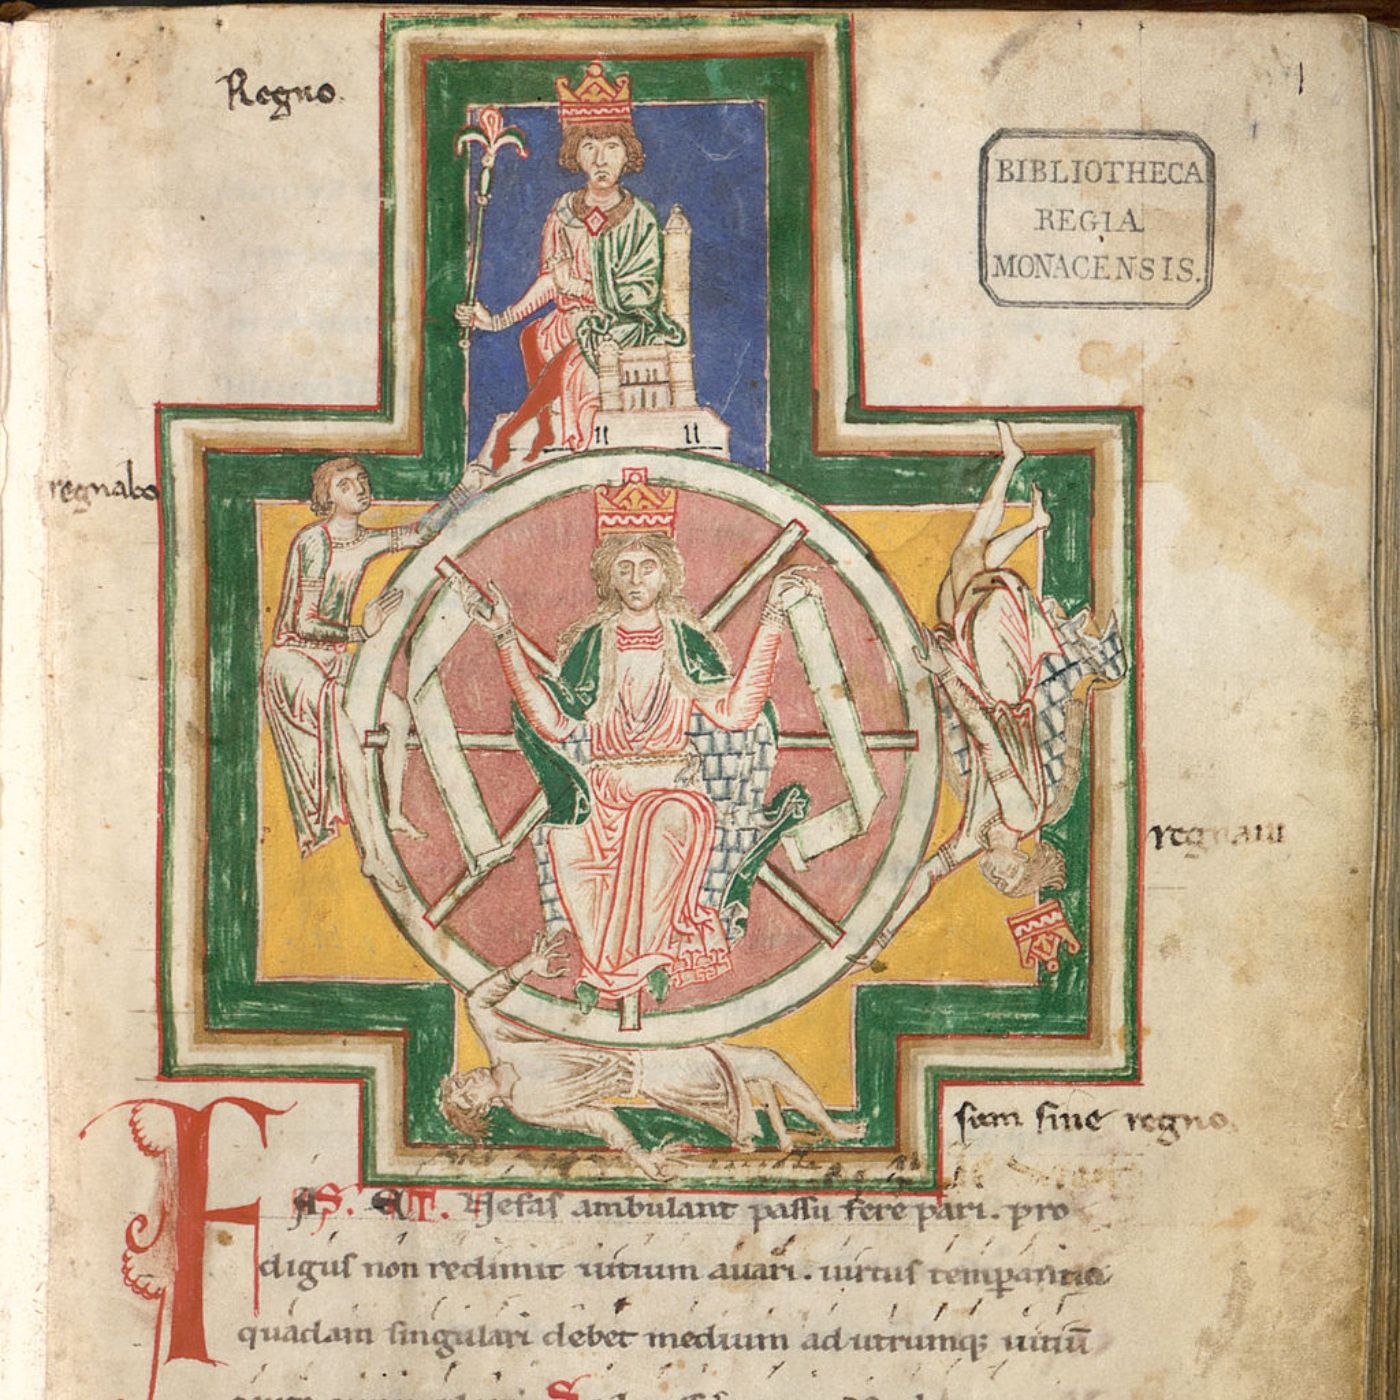 Regno.
1
BIBLIOTHECA
REGIA
MONACENSIS.
regnabo
regnaui
sum sine regno.
FAS. ET. Nefas ambulant passu fere pari. pro
digus non redimit uitium auari. uirtus temperantia
quadam singulari debet medium ad utrumq; uitiū